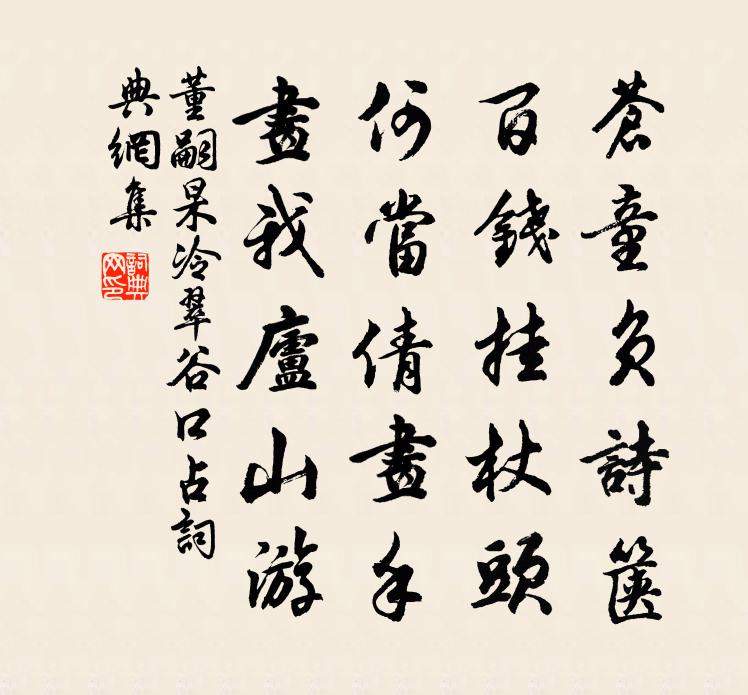 蒼童負詩篋
百錢挂杖頭
何當倩畫手
畫我廬山游
董嗣杲冷翠谷口占詞
典網集
詞典網印